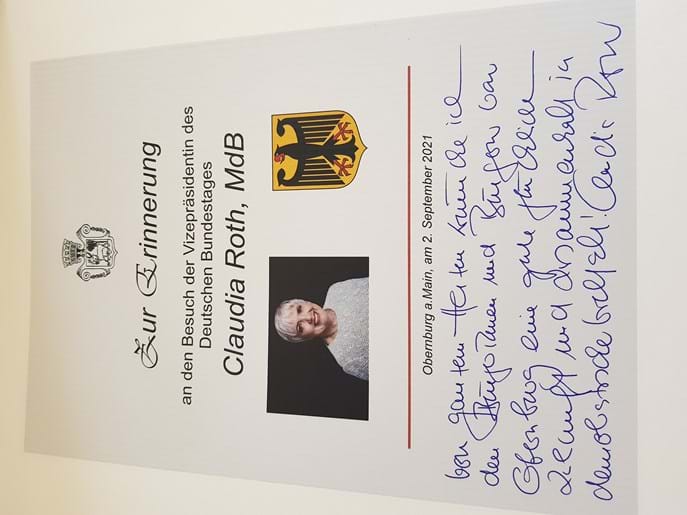 Zur Erinnerung
an den Besuch der Vizepräsidentin des
Deutschen Bundestages
Claudia Roth, MdB
Obernburg a.Main, am 2. September 2021
Von ganzem Herzen wünsche ich
den Bürgerinnen und Bürgern von
Obernburg eine gute
Zukunft und Zusammenhalt in
Vielfalt! Claudia Roth